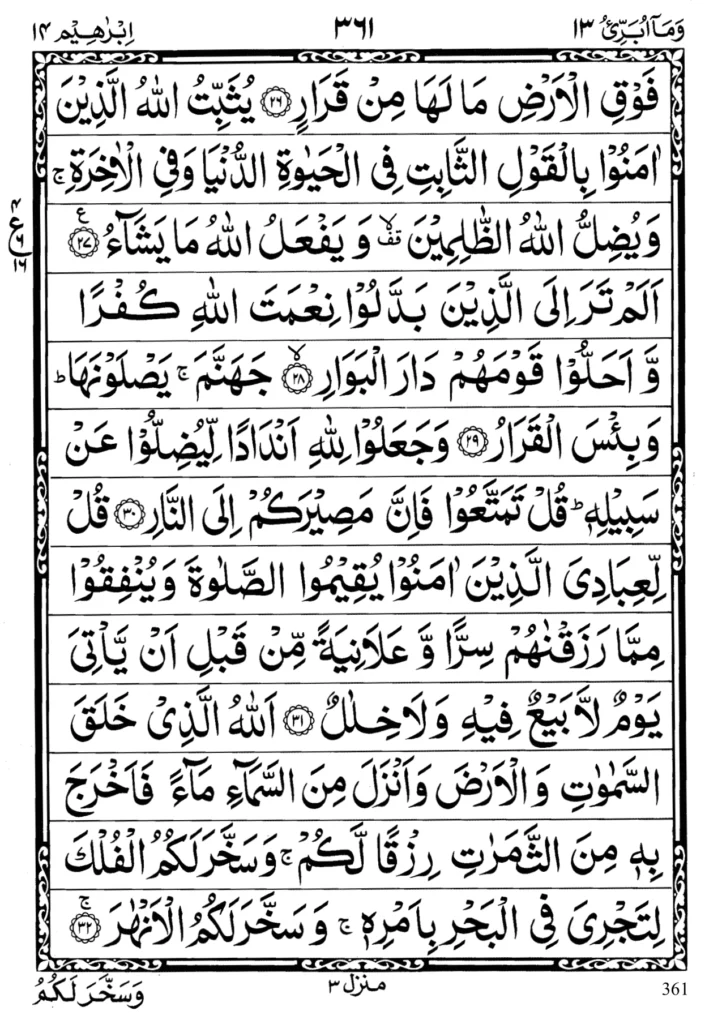 وَمَآ اُبَرِّئُ ۱۳ ۳۶۱ اِبْرٰهِيْم ۱۴
فَوْقِ الْاَرْضِ مَا لَهَا مِنْ قَرَارٍ ﴿۲۶﴾ يُثَبِّتُ اللّٰهُ الَّذِيْنَ
اٰمَنُوْا بِالْقَوْلِ الثَّابِتِ فِى الْحَيٰوةِ الدُّنْيَا وَفِى الْاٰخِرَةِ ۚ
وَيُضِلُّ اللّٰهُ الظّٰلِمِيْنَ ۙ قف وَ يَفْعَلُ اللّٰهُ مَا يَشَآءُ ﴿۲۷﴾ ع
۴ ع ۶ ۱۶
اَلَمْ تَرَ اِلَى الَّذِيْنَ بَدَّلُوْا نِعْمَتَ اللّٰهِ كُفْرًا
وَّ اَحَلُّوْا قَوْمَهُمْ دَارَ الْبَوَارِ ۙ﴿۲۸﴾ جَهَنَّمَ ۚ يَصْلَوْنَهَا ؕ
وَ بِئْسَ الْقَرَارُ ﴿۲۹﴾ وَجَعَلُوْا لِلّٰهِ اَنْدَادًا لِّيُضِلُّوْا عَنْ
سَبِيْلِهٖ ؕ قُلْ تَمَتَّعُوْا فَاِنَّ مَصِيْرَكُمْ اِلَى النَّارِ ﴿۳۰﴾ قُلْ
لِّعِبَادِىَ الَّذِيْنَ اٰمَنُوْا يُقِيْمُوا الصَّلٰوةَ وَيُنْفِقُوْا
مِمَّا رَزَقْنٰهُمْ سِرًّا وَّ عَلَانِيَةً مِّنْ قَبْلِ اَنْ يَّاْتِىَ
يَوْمٌ لَّا بَيْعٌ فِيْهِ وَلَا خِلٰلٌ ﴿۳۱﴾ اَللّٰهُ الَّذِىْ خَلَقَ
السَّمٰوٰتِ وَ الْاَرْضَ وَاَنْزَلَ مِنَ السَّمَآءِ مَآءً فَاَخْرَجَ
بِهٖ مِنَ الثَّمَرٰتِ رِزْقًا لَّكُمْ ۚ وَسَخَّرَ لَكُمُ الْفُلْكَ
لِتَجْرِىَ فِى الْبَحْرِ بِاَمْرِهٖ ۚ وَ سَخَّرَ لَكُمُ الْاَنْهٰرَ ۚ﴿۳۲﴾
361 منزل ۳ وَسَخَّرَ لَكُمُ